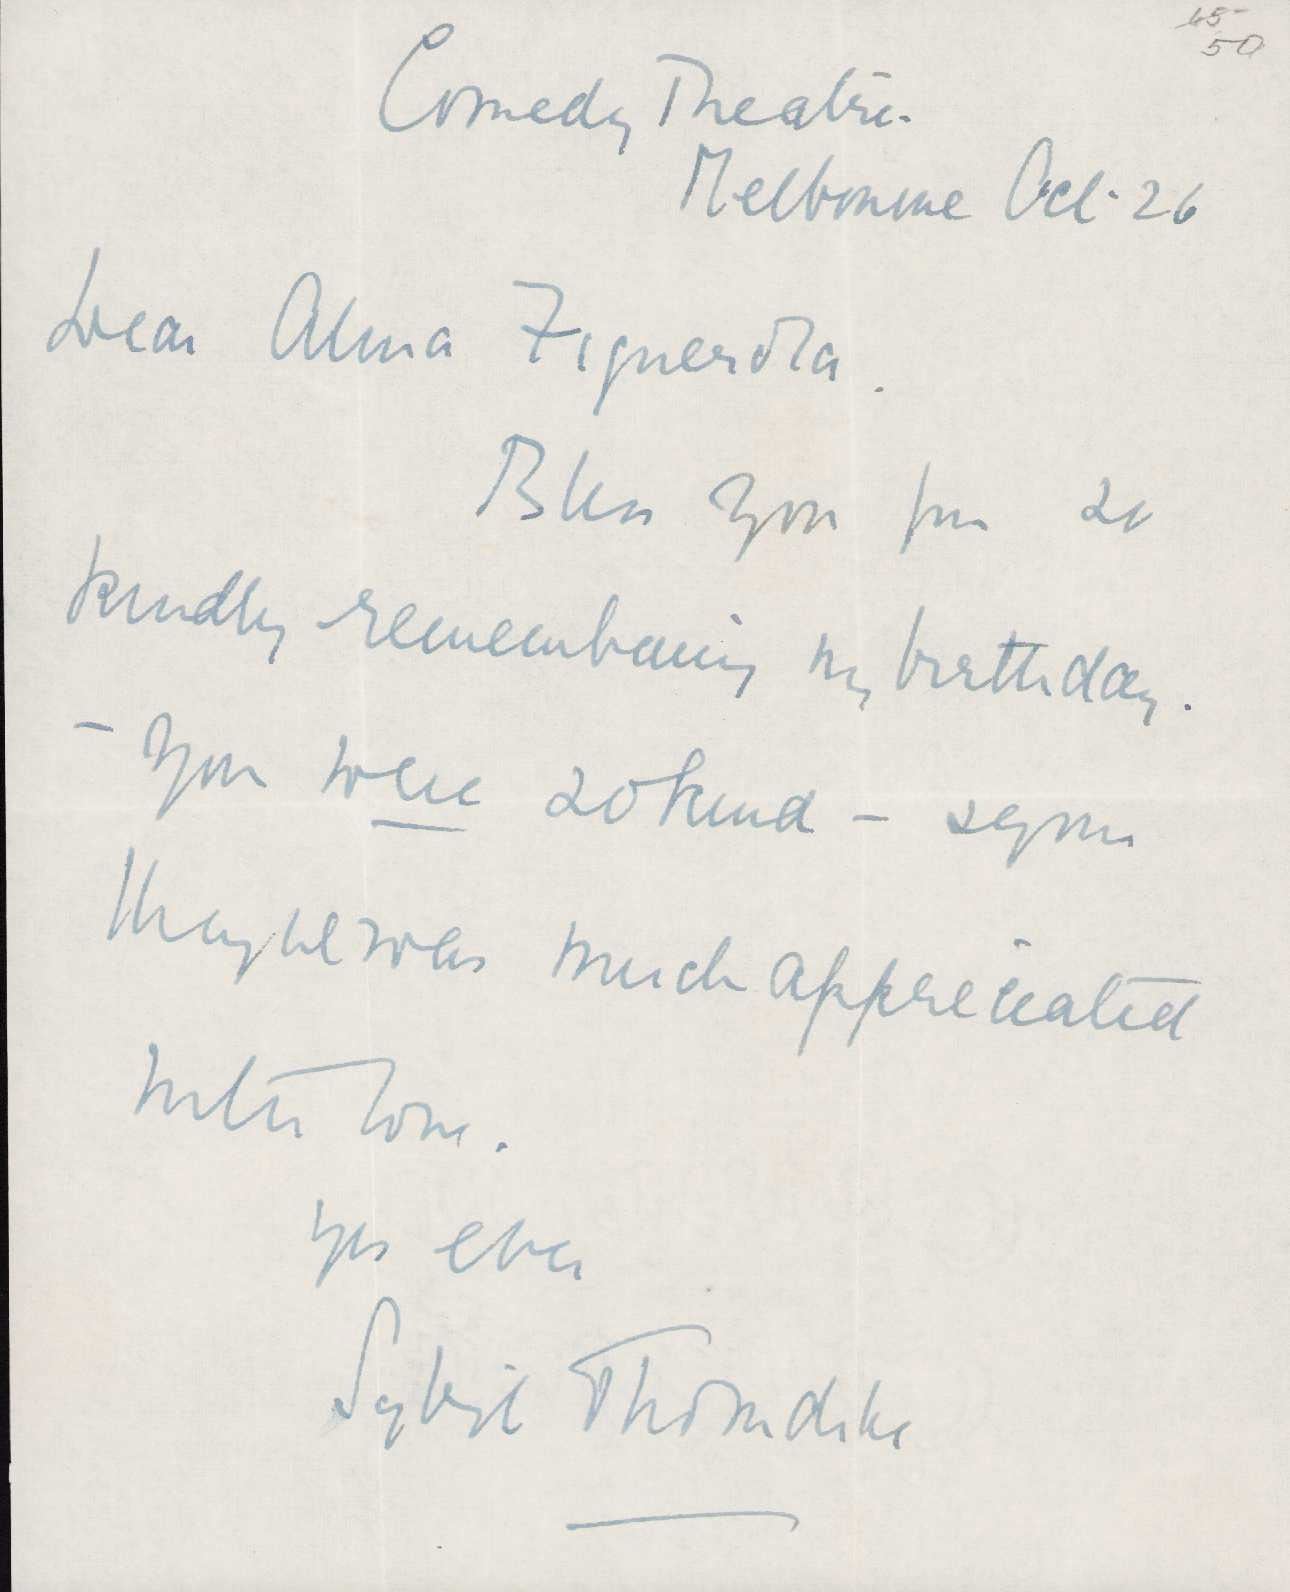 45
50
Comedy Theatre.
Melbourne Oct. 26
Dear Alma Figuerola.
Bless you for so
kindly remembering my birthday.
- You were so kind - & your
thought was much appreciated
with love.
Yrs ever
Sybil Thorndike